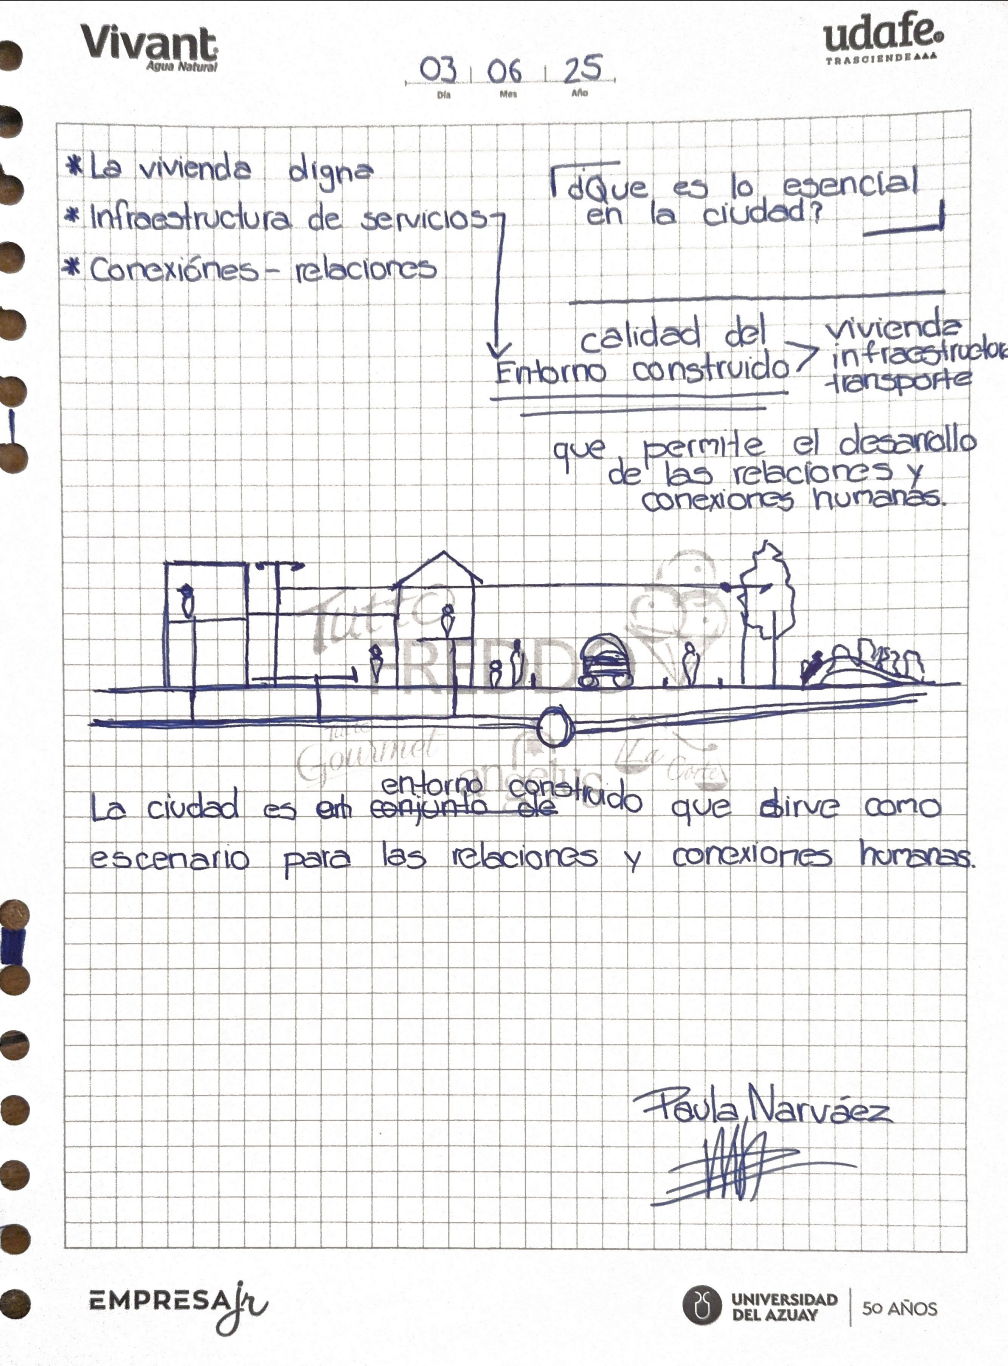 Vivant
Agua Natural
udafe.
TRASCIENDE
03 06 25
Día Mes Año
* La vivienda digna
* Infraestructura de servicios
* Conexiónes - relaciones
¿Que es lo esencial
en la ciudad?
calidad del
Entorno construido >
vivienda
infraestructora
transporte
que permite el desarrollo
de las relaciones y
conexiones humanas.
Tutto
FREDDO
Gourmet
La Corte
entorno construido
La ciudad es en conjunto de que sirve como
escenario para las relaciones y conexiones humanas.
Paula Narváez
EMPRESA jr
UNIVERSIDAD
DEL AZUAY
50 AÑOS